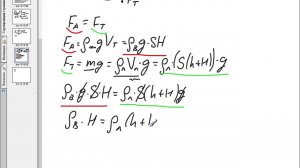 F_A = F_T
F_A = ρ_m g V_T = ρ_B g · S H
F_T = m g = ρ_л V_л · g = ρ_л (S (h + H)) · g
ρ_B · g · S · H = ρ_л · S (h + H) g
ρ_B · H = ρ_л (h + H